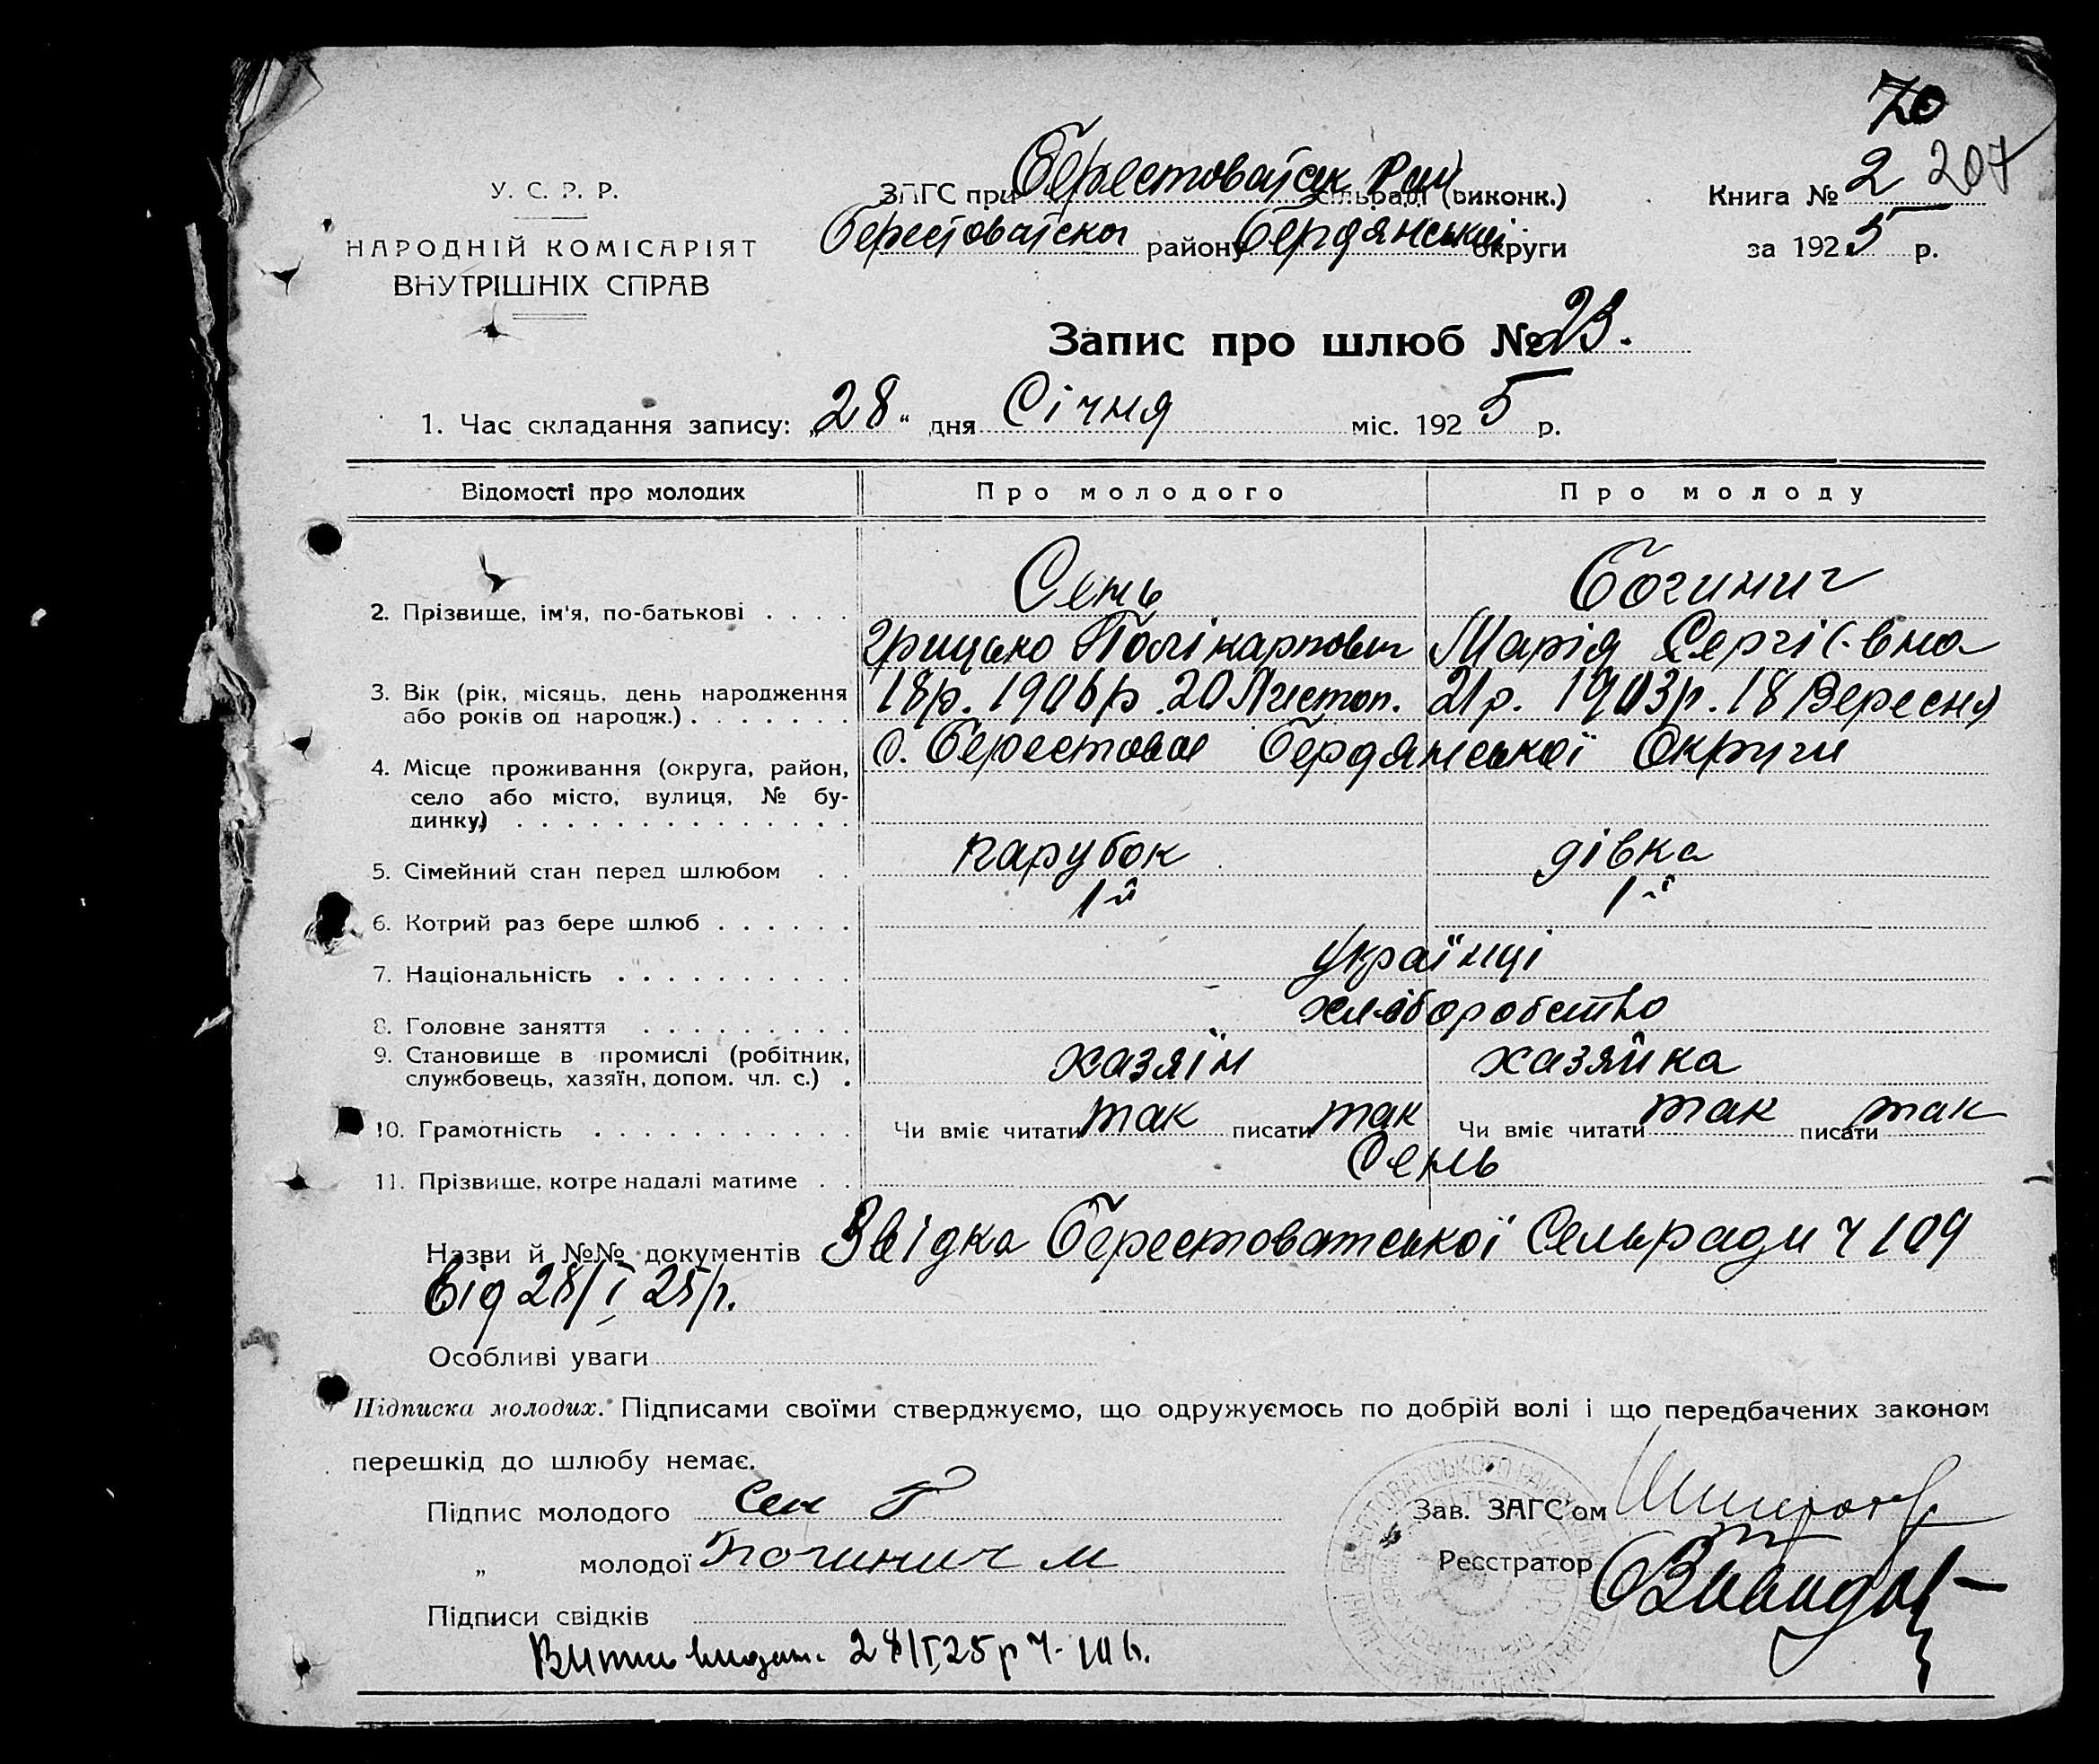 70
У. С. Р. Р.
НАРОДНІЙ КОМІСАРІЯТ
ВНУТРІШНІХ СПРАВ
ЗАГС при Берестоватськ Рай сільраді (виконк.)
Берестоватськ району Бердянської округи
Книга № 2 207
за 1925 р.
Запис про шлюб № 23.
1. Час складання запису: „28“ дня Січня міс. 1925 р.
Відомості про молодих Про молодого Про молоду
2. Прізвище, ім'я, по-батькові . . . . Сень Богинич
Грицько Полікарпович Марія Сергіївна
3. Вік (рік, місяць, день народження або років од народж.) . . . . . . . 18р. 1906р. 20 Листоп. 21р. 1903р. 18 Вересня
4. Місце проживання (округа, район, село або місто, вулиця, № будинку) . . . . . . . . . . . . . . с. Берестовое Бердянської Округи
5. Сімейний стан перед шлюбом . . парубок дівка
6. Котрий раз бере шлюб . . . . . . 1й 1й
7. Національність . . . . . . . . . . українці
8. Головне заняття . . . . . . . . . хліборобство
9. Становище в промислі (робітник, службовець, хазяїн, допом. чл. с.) . хазяїн хазяйка
10. Грамотність . . . . . . . . . . . Чи вміє читати так писати так Чи вміє читати так писати так
11. Прізвище, котре надалі матиме . . Сень
Назви й №№ документів Звідка Берестоватської Сельради ч 109
від 28/I 25р.
Особливі уваги
Підписка молодих. Підписами своїми стверджуємо, що одружуємось по добрій волі і що передбачених законом
перешкід до шлюбу немає.
Підпис молодого Сен Г
Зав. ЗАГС'ом
„ молодої Богинич М
Реєстратор
Підписи свідків
28/I 25р ч. 106.